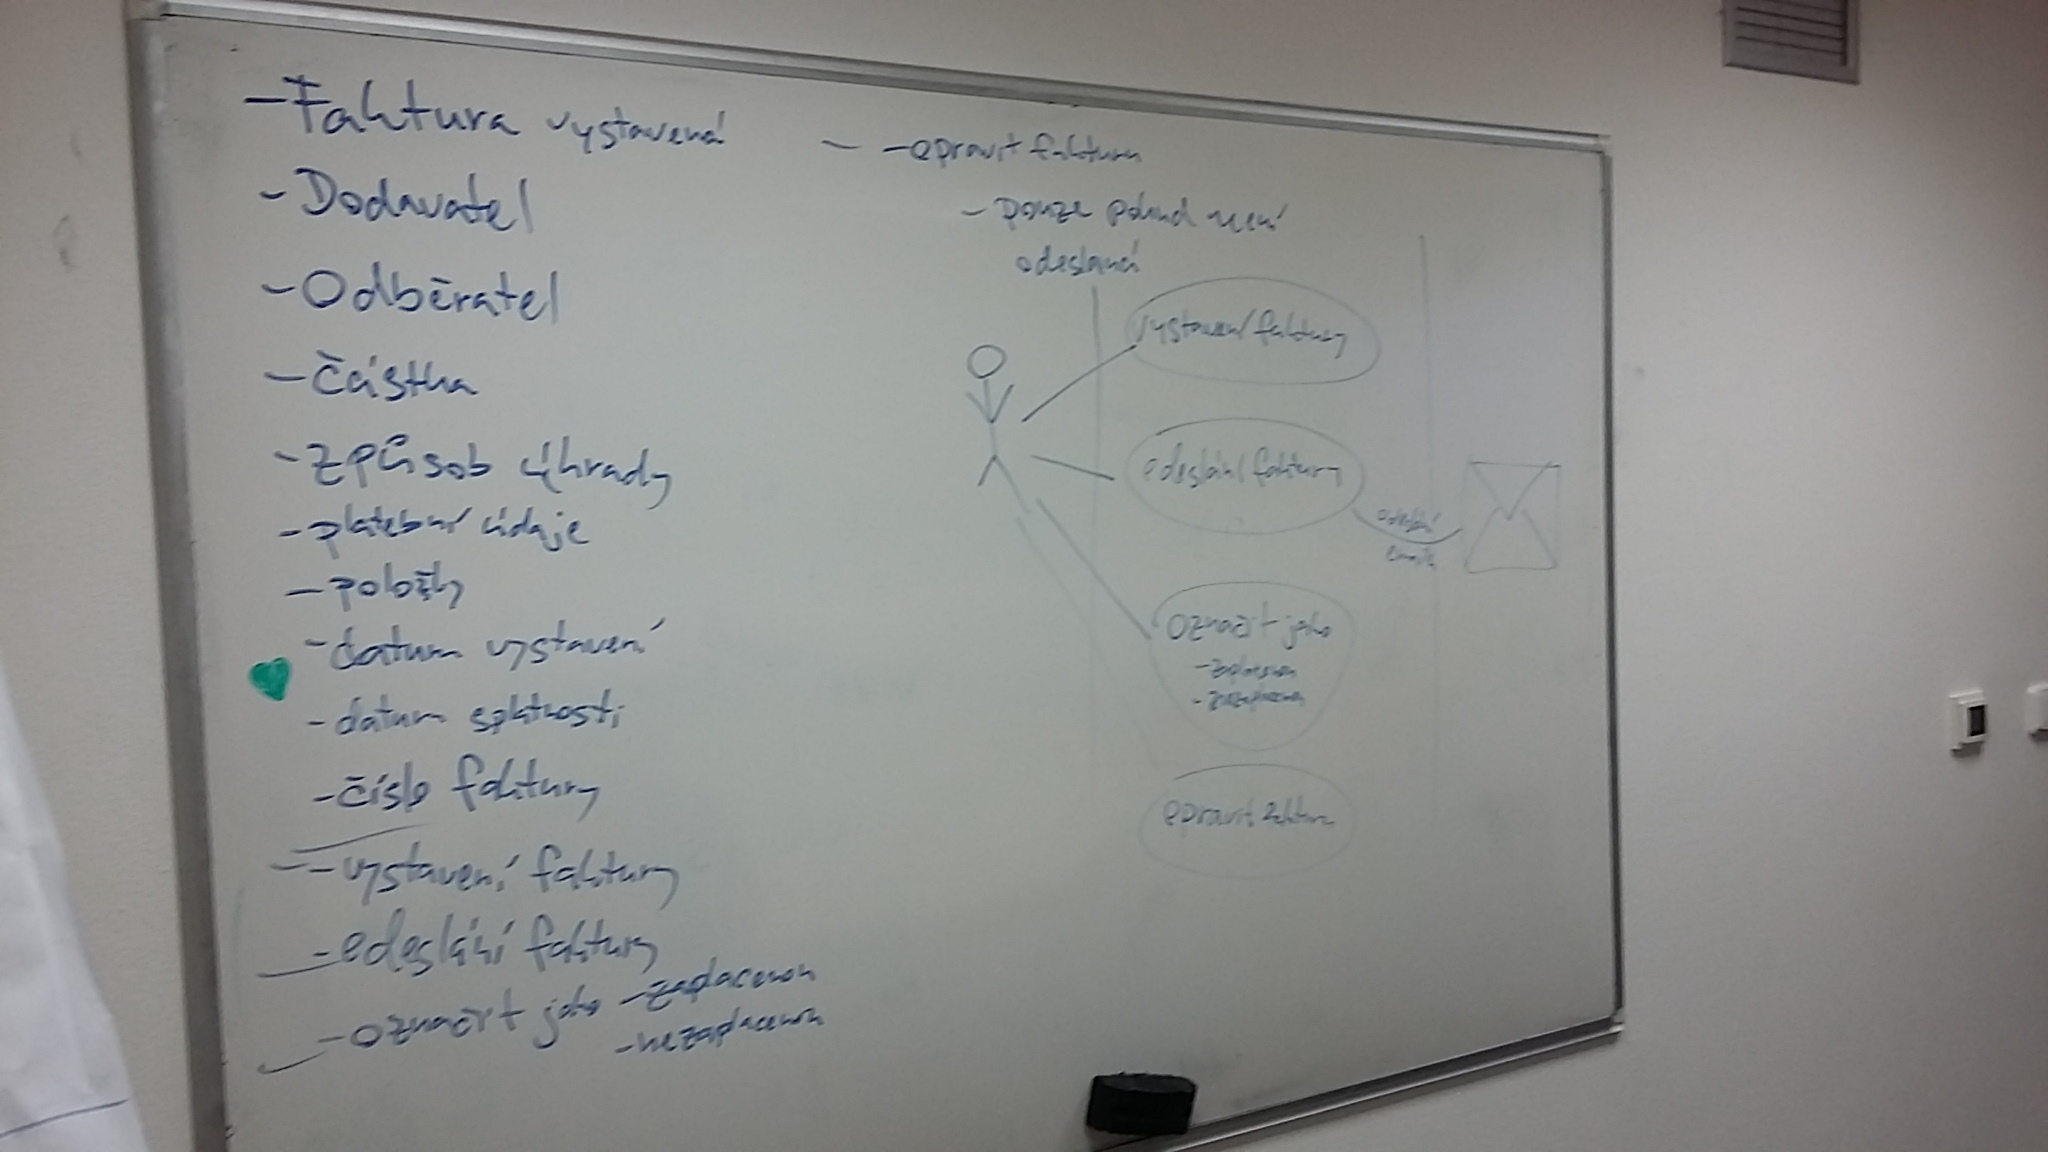 - Faktura vystavená
- Dodavatel
- Odběratel
- částka
- způsob úhrady
- platební údaje
- položky
- datum vystavení
- datum splatnosti
- číslo faktury
- vystavení faktury
- odeslání faktury
- označit jako - zaplacenou
- nezaplacenou
- opravit fakturu
- pouze pokud není
odeslaná
vystavení faktury
odeslání faktury
odeslání
emailu
označit jako
- zaplacenou
- nezaplacenou
opravit fakturu